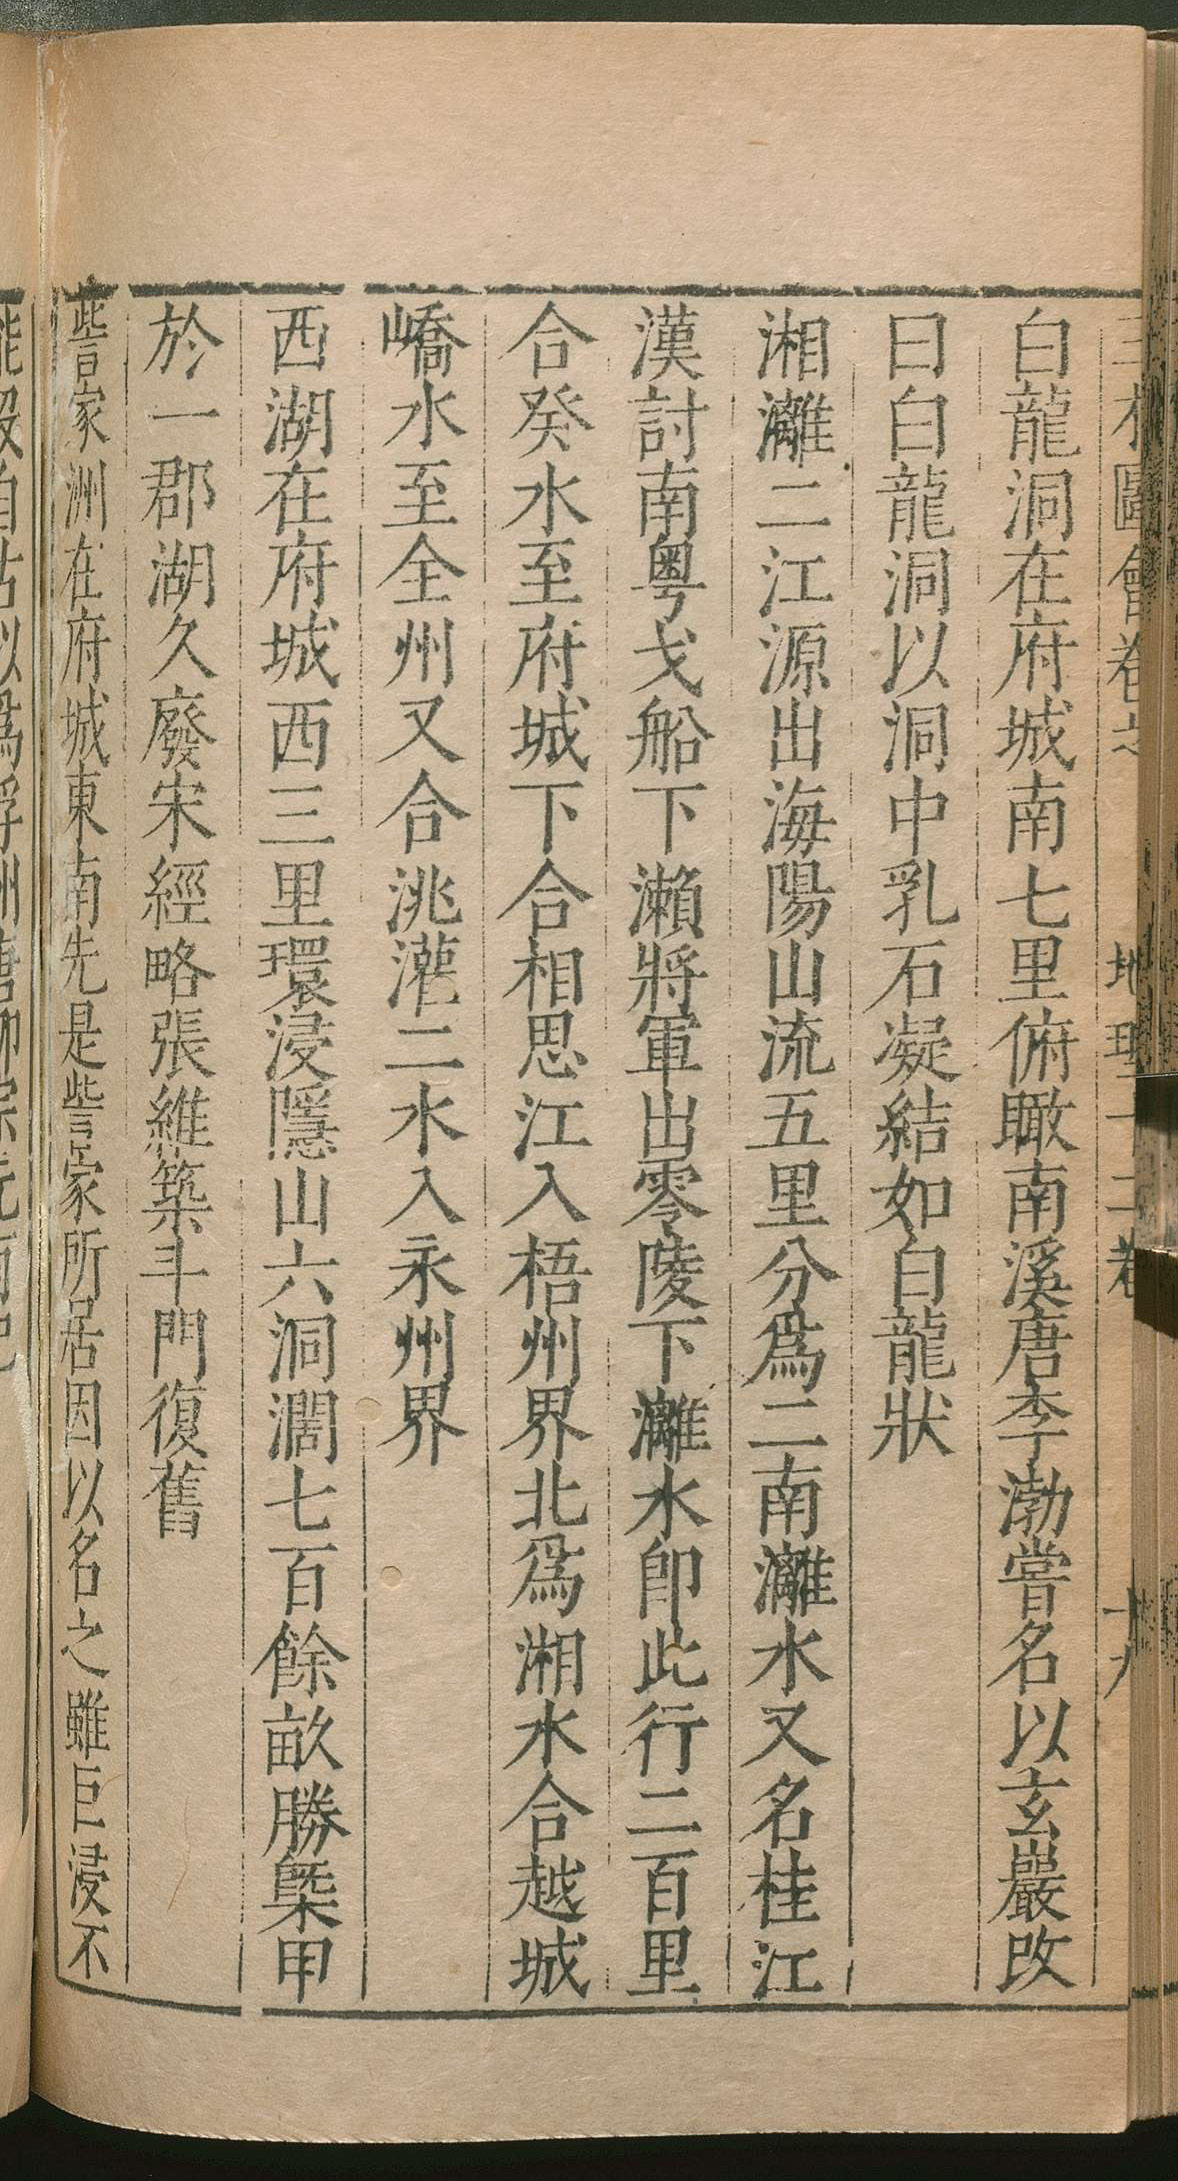 三才圖會卷之 地理十二卷 十九
白龍洞在府城南七里俯瞰南溪唐李渤嘗名以玄巖改
曰白龍洞以洞中乳石凝結如白龍狀
湘灕二江源出海陽山流五里分爲二南灕水又名桂江
漢討南粵戈船下瀨將軍出零陵下灕水卽此行二百里
合癸水至府城下合相思江入梧州界北爲湘水合越城
嶠水至全州又合洮灌二水入永州界
西湖在府城西三里環浸隱山六洞濶七百餘畝勝槩甲
於一郡湖久廢宋經略張維築斗門復舊
訾家洲在府城東南先是訾家所居因以名之雖巨浸不